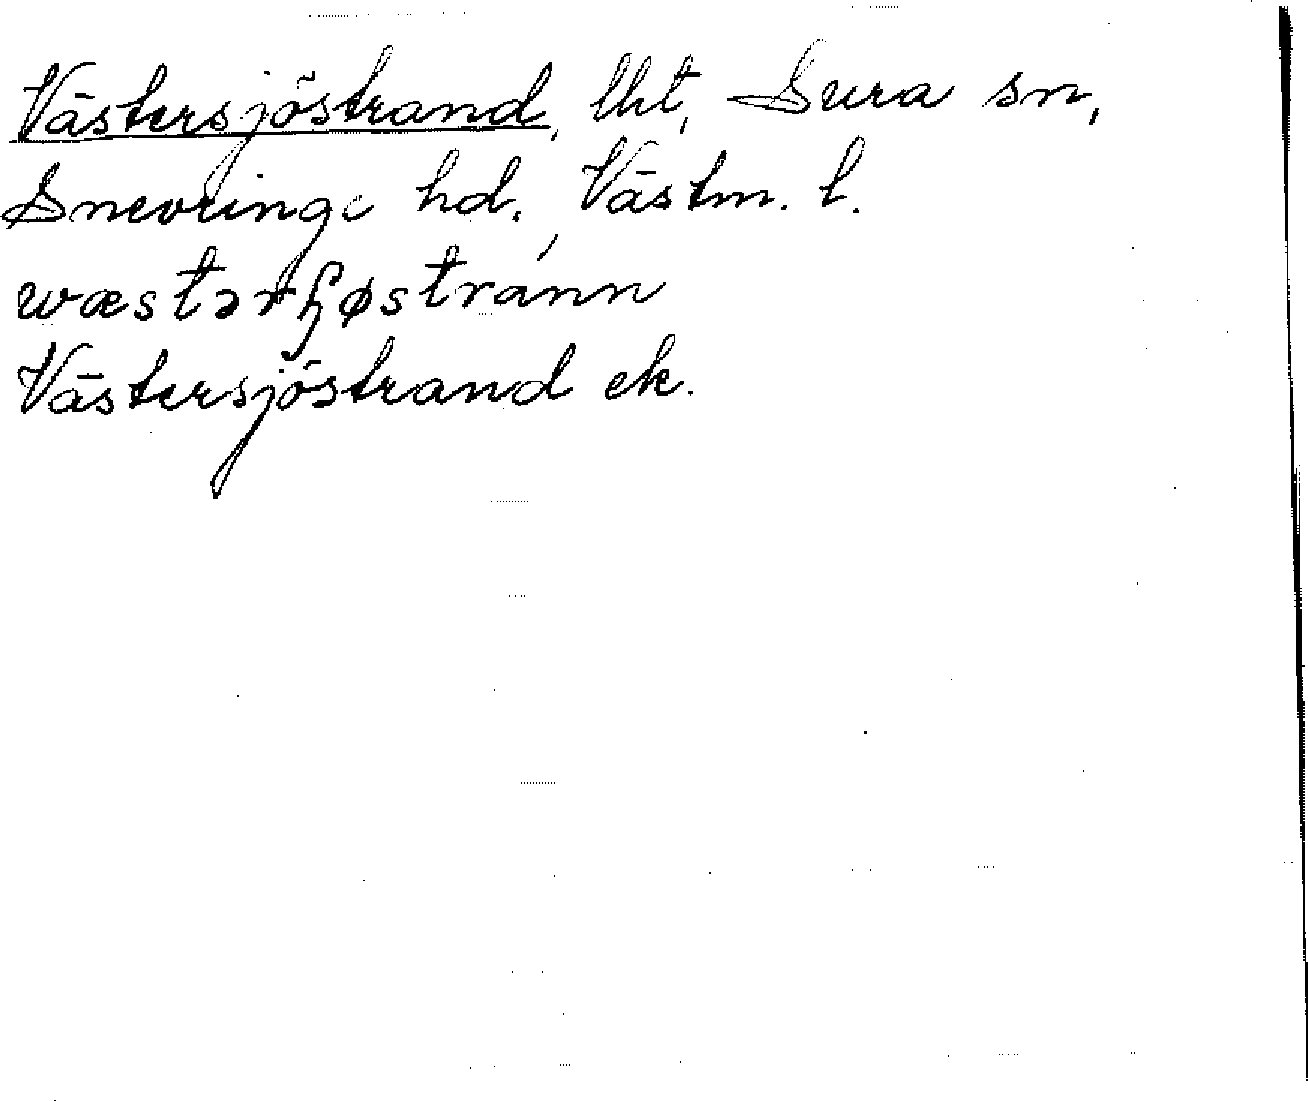 Västersjöstrand, lht, Sura sn,
Snevringe hd., Västm. l.
wæstərɧøstránn
Västersjöstrand ek.